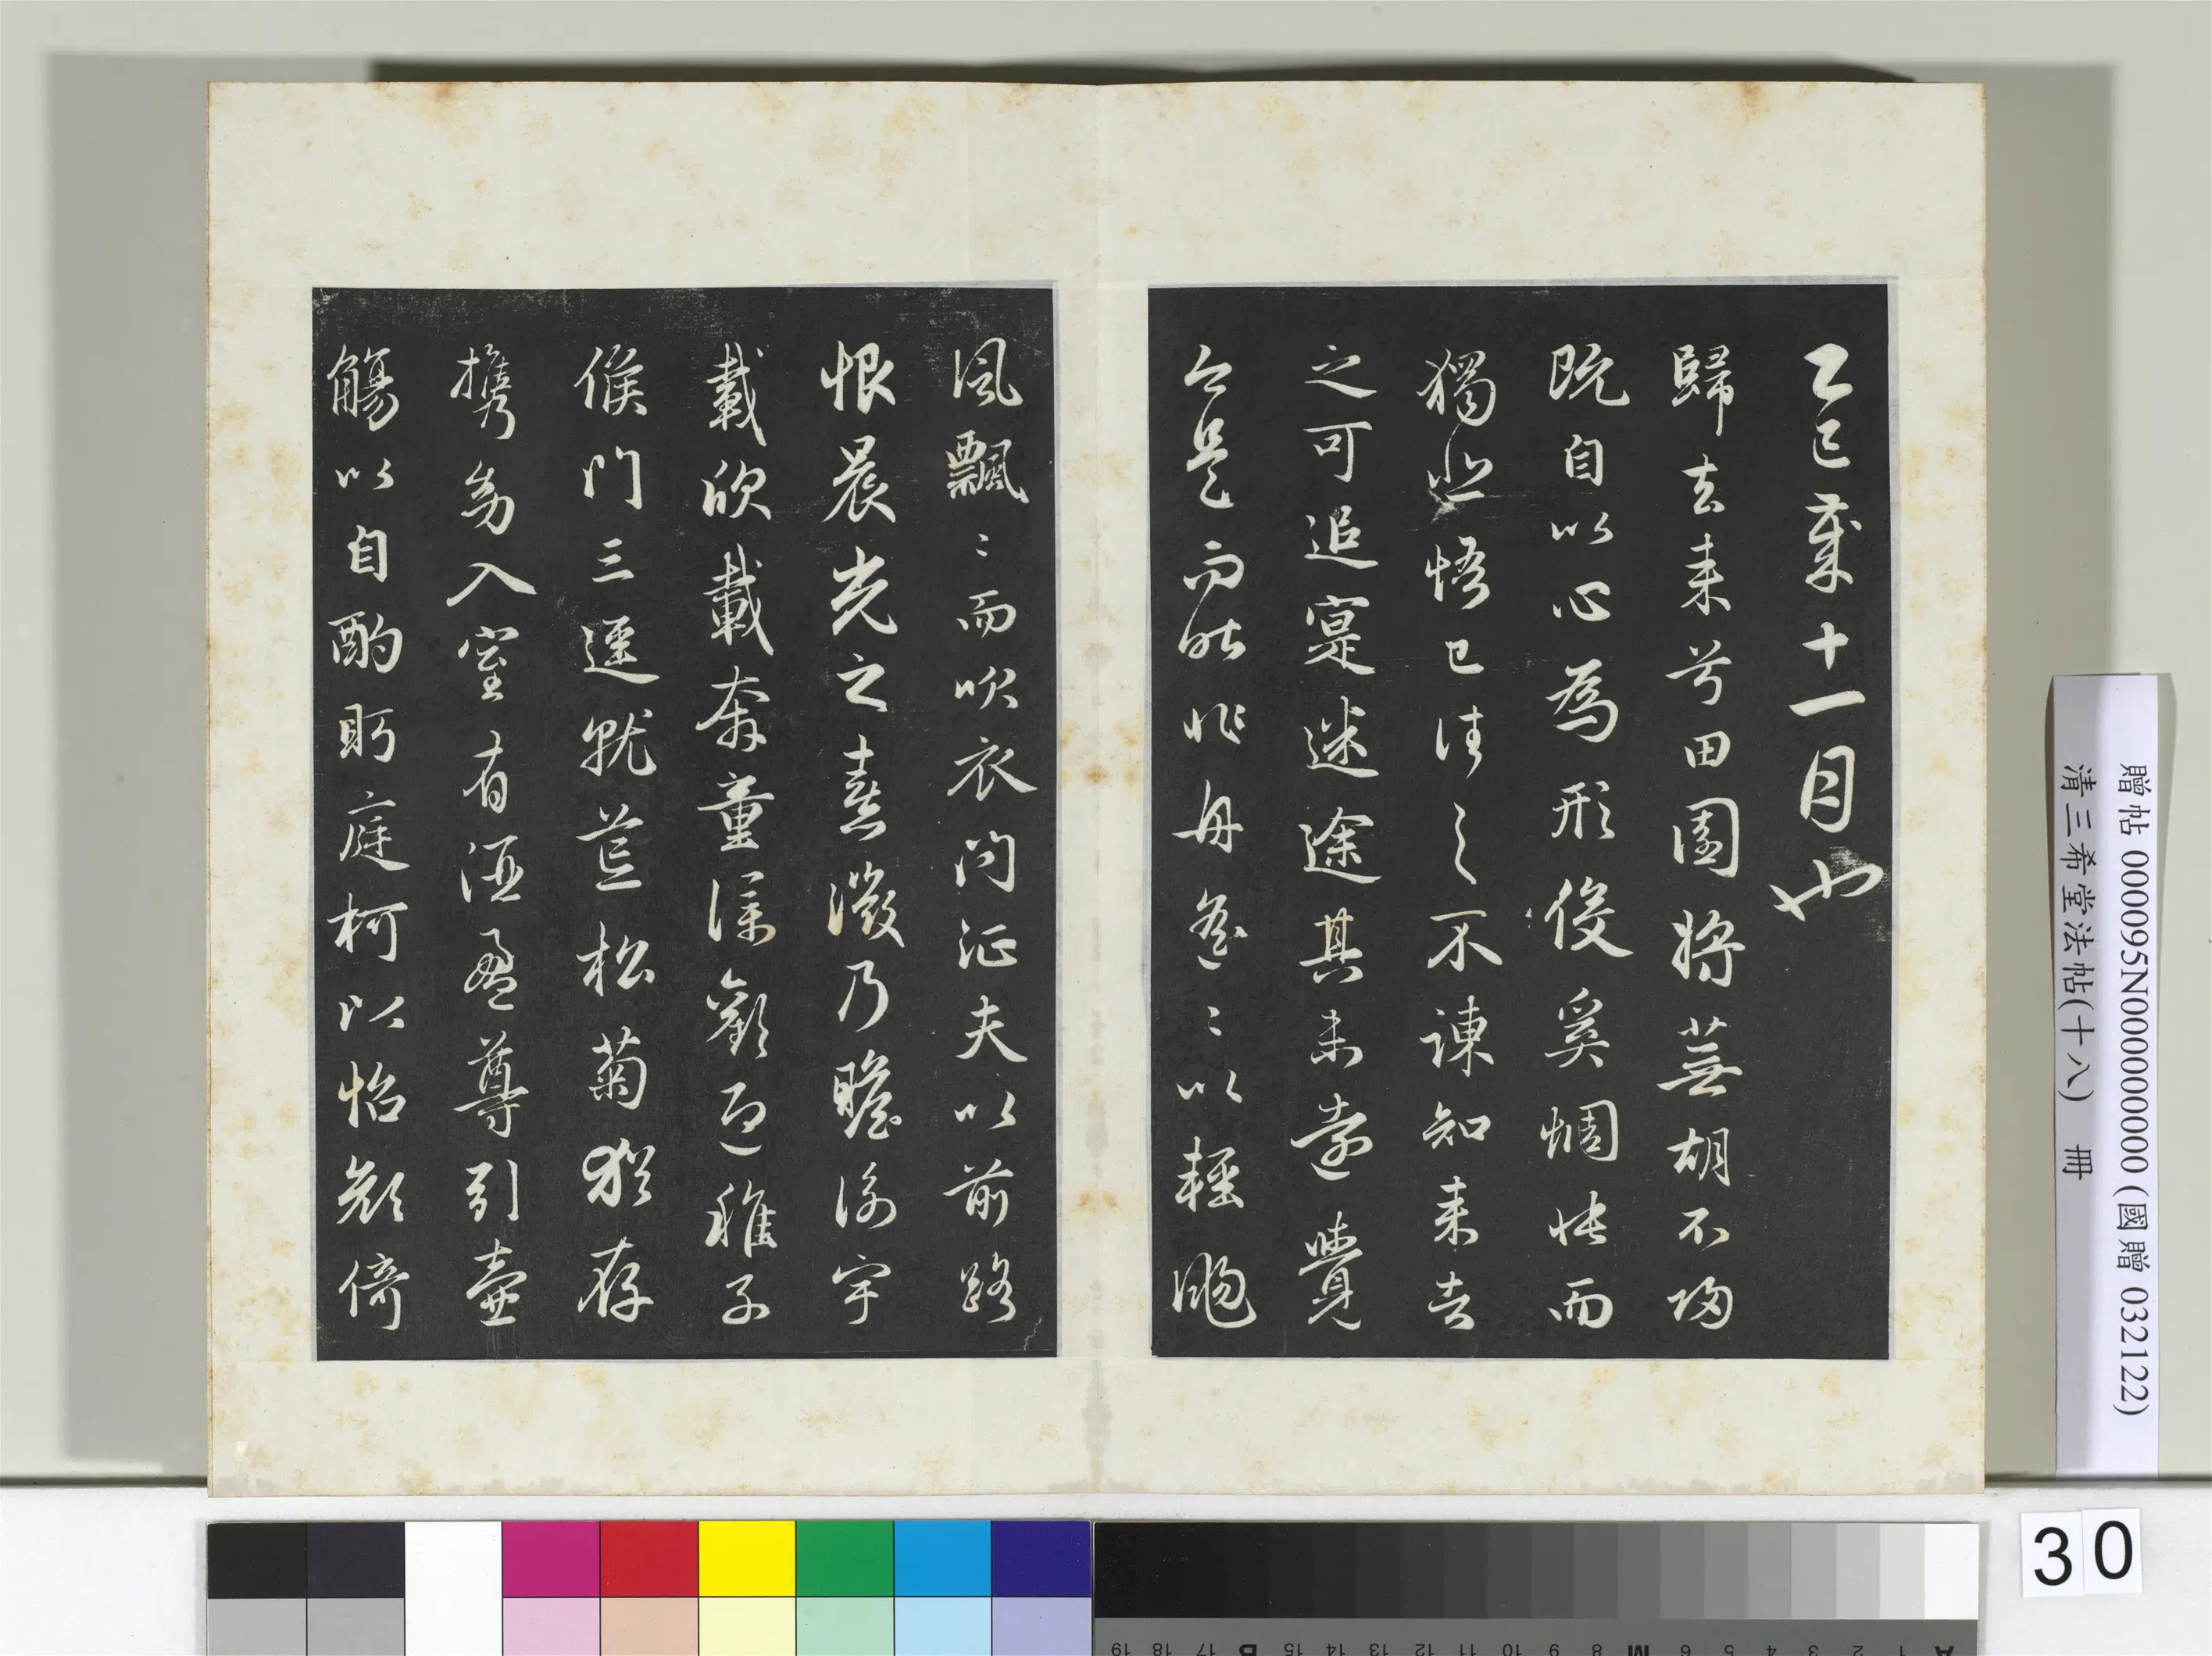 乙巳歲十一月也
歸去来兮田園将蕪胡不歸
既自以心為形役奚惆悵而
獨悲悟已往之不諫知来者
之可追寔迷途其未遠覺
今是而昨非舟遙〻以輕颺
風飄〻而吹衣問征夫以前路
恨晨光之熹微乃瞻衡宇
載欣載奔童僕歡迎稚子
候門三逕就荒松菊猶存
携幼入室有酒盈尊引壺
觴以自酌眄庭柯以怡顏倚
贈帖 000095N000000000 (國贈 032122)
清三希堂法帖(十八) 冊
30
A 1 2 3 4 5 6 M 8 9 10 11 12 13 14 15 B 17 18 19